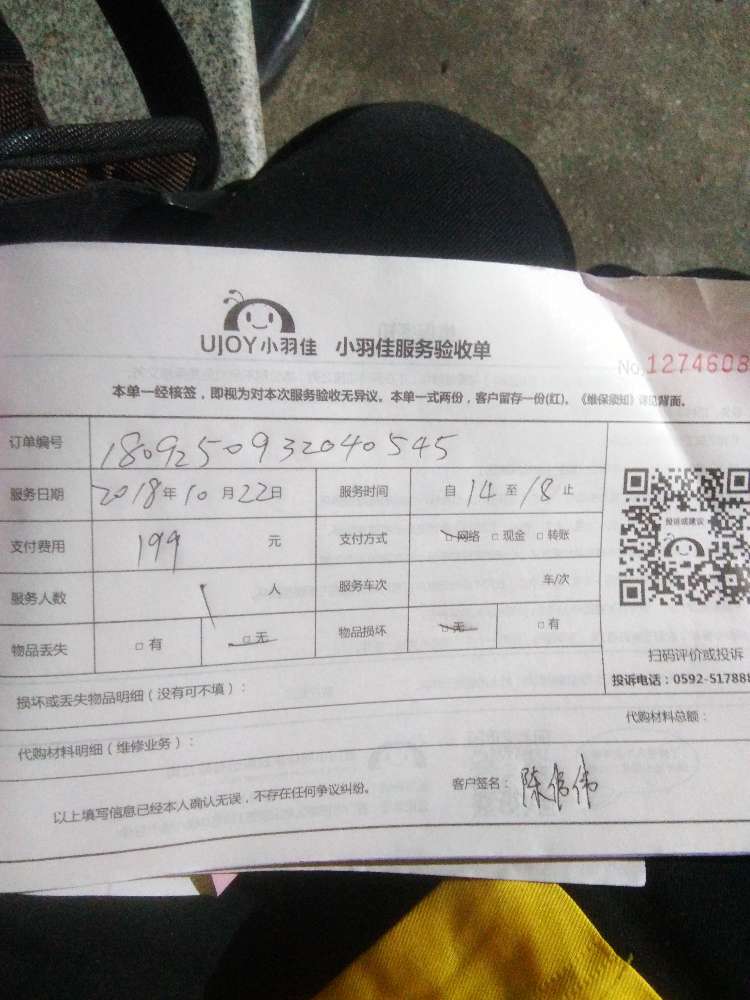 UJOY小羽佳 小羽佳服务验收单
No.1274608
本单一经核签，即视为对本次服务验收无异议。本单一式两份，客户留存一份(红)。《维保须知》详见背面。
订单编号 180925093204054​5
服务日期 2018年10月22日 服务时间 自14至18止
支付费用 199 元 支付方式 □网络 □现金 □转账
投诉或建议
服务人数 1 人 服务车次 车/次
物品丢失 □有 □无 物品损坏 □无 □有
扫码评价或投诉
投诉电话：0592-517888
损坏或丢失物品明细（没有可不填）：
代购材料总额：
代购材料明细（维修业务）：
以上填写信息已经本人确认无误，不存在任何争议纠纷。
客户签名：陈伟